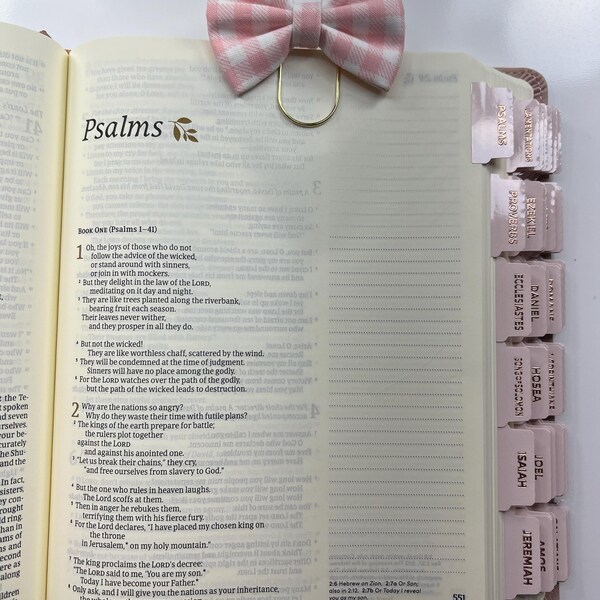 Psalms
BOOK ONE (Psalms 1–41)
1 Oh, the joys of those who do not
follow the advice of the wicked,
or stand around with sinners,
or join in with mockers.
2 But they delight in the law of the LORD,
meditating on it day and night.
3 They are like trees planted along the riverbank,
bearing fruit each season.
Their leaves never wither,
and they prosper in all they do.
4 But not the wicked!
They are like worthless chaff, scattered by the wind.
5 They will be condemned at the time of judgment.
Sinners will have no place among the godly.
6 For the LORD watches over the path of the godly,
but the path of the wicked leads to destruction.
2 Why are the nations so angry?
Why do they waste their time with futile plans?
2 The kings of the earth prepare for battle;
the rulers plot together
against the LORD
and against his anointed one.
3 "Let us break their chains," they cry,
"and free ourselves from slavery to God."
4 But the one who rules in heaven laughs.
The Lord scoffs at them.
5 Then in anger he rebukes them,
terrifying them with his fierce fury.
6 For the Lord declares, "I have placed my chosen king on
the throne
in Jerusalem,* on my holy mountain."
7 The king proclaims the LORD's decree:
"The LORD said to me, 'You are my son.*
Today I have become your Father.*
8 Only ask, and I will give you the nations as your inheritance,
2:6 Hebrew on Zion. 2:7a Or Son;
also in 2:12. 2:7b Or Today I reveal
you as my son.
551
PSALMS
PROVERBS
EZEKIEL
ECCLESIASTES
DANIEL
SONG OF SOLOMON
HOSEA
ISAIAH
JOEL
JEREMIAH
AMOS